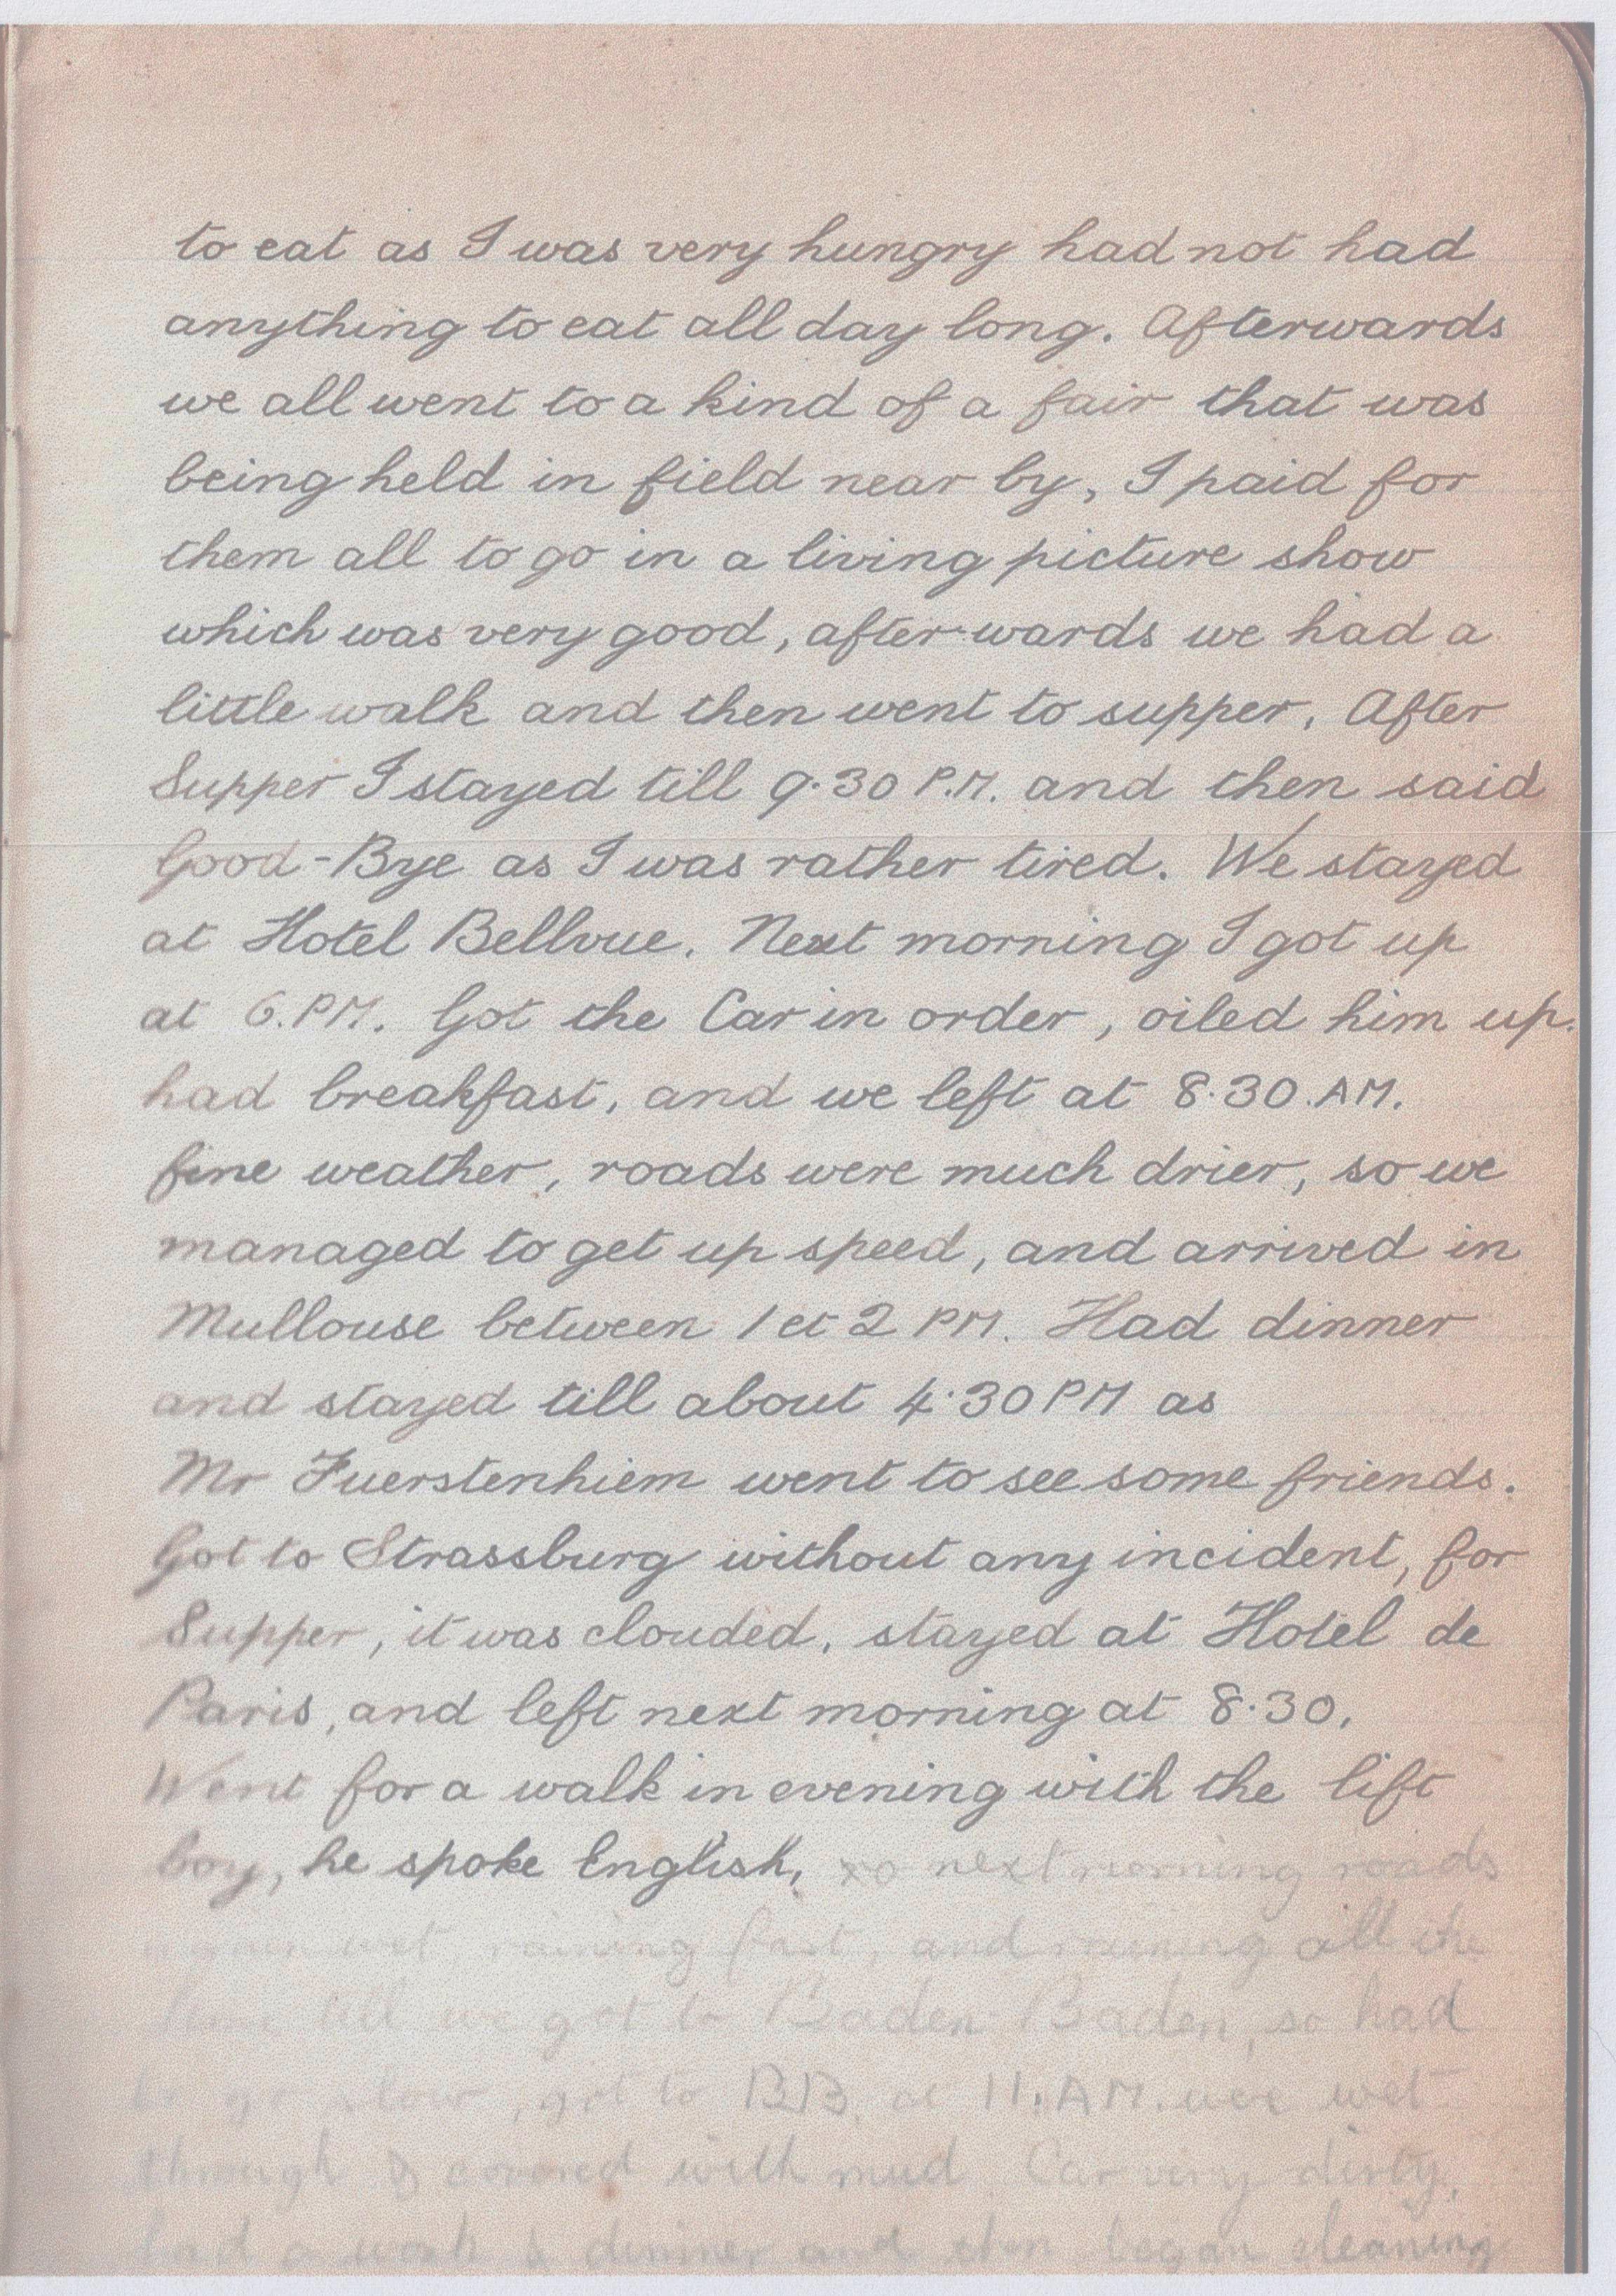 to eat as I was very hungry had not had
anything to eat all day long. Afterwards
we all went to a kind of a fair that was
being held in field near by, I paid for
them all to go in a living picture show
which was very good, after-wards we had a
little walk and then went to supper. After
Supper I stayed till 9.30 P.M. and then said
Good-Bye as I was rather tired. We stayed
at Hotel Bellvue. Next morning I got up
at 6.PM. Got the Car in order, oiled him up.
had breakfast, and we left at 8.30.AM.
fine weather, roads were much drier, so we
managed to get up speed, and arrived in
Mullouse between 1 et 2 PM. Had dinner
and stayed till about 4.30 PM as
Mr Fuerstenhiem went to see some friends.
Got to Strassburg without any incident, for
Supper, it was clouded, stayed at Hotel de
Paris, and left next morning at 8.30.
Went for a walk in evening with the lift
boy, he spoke English, next morning roads
wet, raining fast, and raining all the
time till we got to Baden-Baden, so had
to go slow, got to BB. at 11.AM. wet
through & covered with mud Car very dirty,
had a wash & dinner and then began cleaning